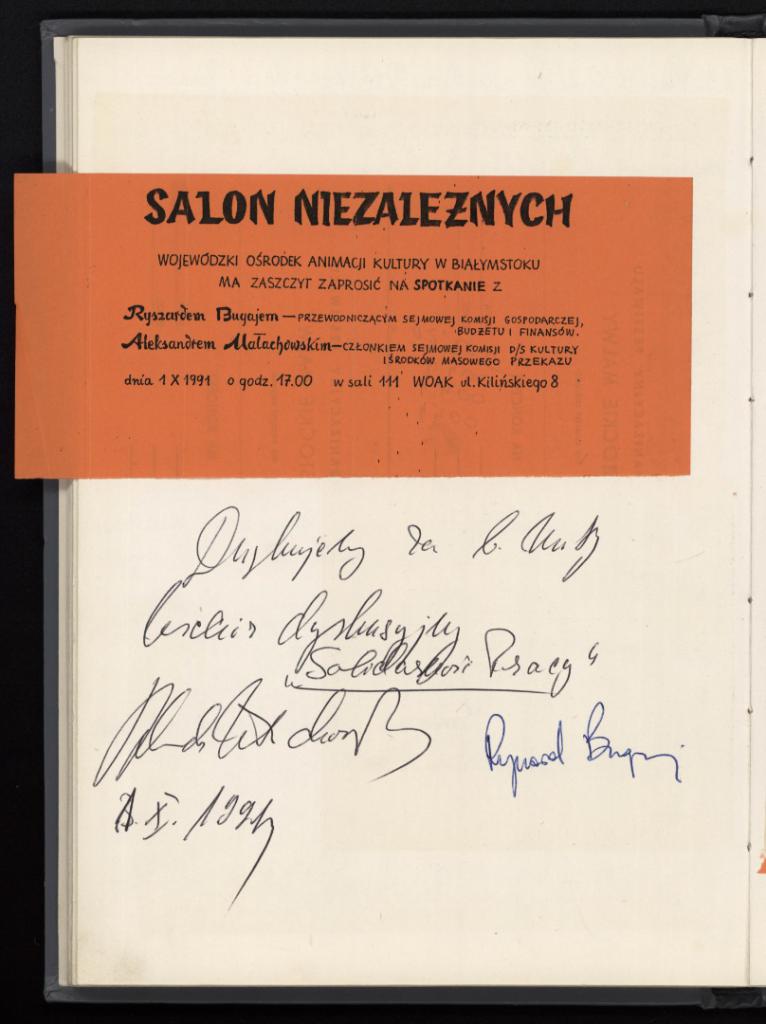 SALON NIEZALEŻNYCH
WOJEWÓDZKI OŚRODEK ANIMACJI KULTURY W BIAŁYMSTOKU
MA ZASZCZYT ZAPROSIĆ NA SPOTKANIE Z
Ryszardem Bugajem — PRZEWODNICZĄCYM SEJMOWEJ KOMISJI GOSPODARCZEJ,
BUDŻETU I FINANSÓW.
Aleksandrem Małachowskim — CZŁONKIEM SEJMOWEJ KOMISJI D/S KULTURY
I ŚRODKÓW MASOWEGO PRZEKAZU
dnia 1 X 1991 o godz. 17.00 w sali 111 WOAK ul. Kilińskiego 8
Dziękujemy za b.
wieczór dyskusyjny
„Solidarność Pracy"
Ryszard Bugaj
1.X.1991